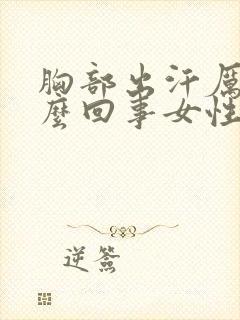 胸部出汗厲
麼回事女性
逆簽